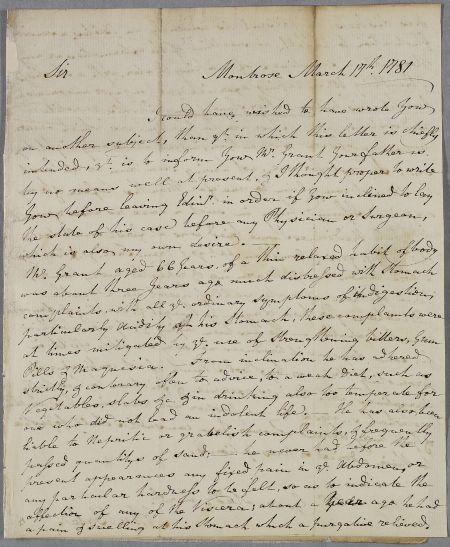 Sir Montrose March 17th. 1781
I could have wished to have wrote Yow
on another subject, than yt. in which this letter is chiefly
intended, yt. is to inform Yow Mr. Grant Your father is
by no means well at present, & I thought proper to write
Yow before leaving Edinr. in order if Yow inclined to lay
the state of his case before any Physician or Surgeon,
which is also my own desire. —
Mr. Grant aged 66 Years, of a thin relaxed habit of body
was about three Years ago much distressed with Stomach
complaints, with all ye. ordinary symptoms of Indigestion,
particularly Acidity in his Stomach, these complaints were
at times mitigated by ye. use of Strong Bitters, Gum
Pills & Magnesia. From inclination he has adhered
strictly, & contrary often to advice, to a weak diet, such as
Vegetables, slabs &c & in drinking also too temperate for
one who did not lead an indolent life. — He has also been
liable to Nephritic or gravelish complaints, & frequently
passed quantitys of sand; — he never had before the
present appearances any fixed pain in ye. Abdomen, or
any particular hardness to be felt, so as to indicate the
affection of any of the Viscera; about a Year ago he had
a pain & swelling at his Stomach which a purgative relieved,